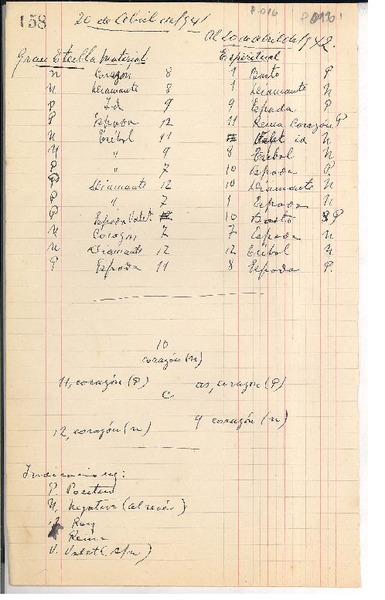 158
20 de Abril de 1941
Al 20 de Abril de 1942.
Gran Estrella Material
Espiritual
n Corazón 8 1 Basto P
n Diamante 8 1 Diamante n
P Id 9 9 Espada P
P Espada 12 11 Reina Corazón P.
n Trébol 11 Valet id n
n " 9 8 Trébol n
P " 7 10 Espada P
P Diamante 12 10 Diamante n
P " 7 1 Espada n
P Espada Valet 10 Basto P
n Corazón 7 7 Espada n
n Diamante 12 12 Trébol n
P Espada 11 8 Espada P.
10
corazón (n)
11, corazón (P) as, corazón (P)
C
12, corazón (n) 9 corazón (n)
P. Positivo
N. Negativo (al revés)
Rey
Reina
V. Valet